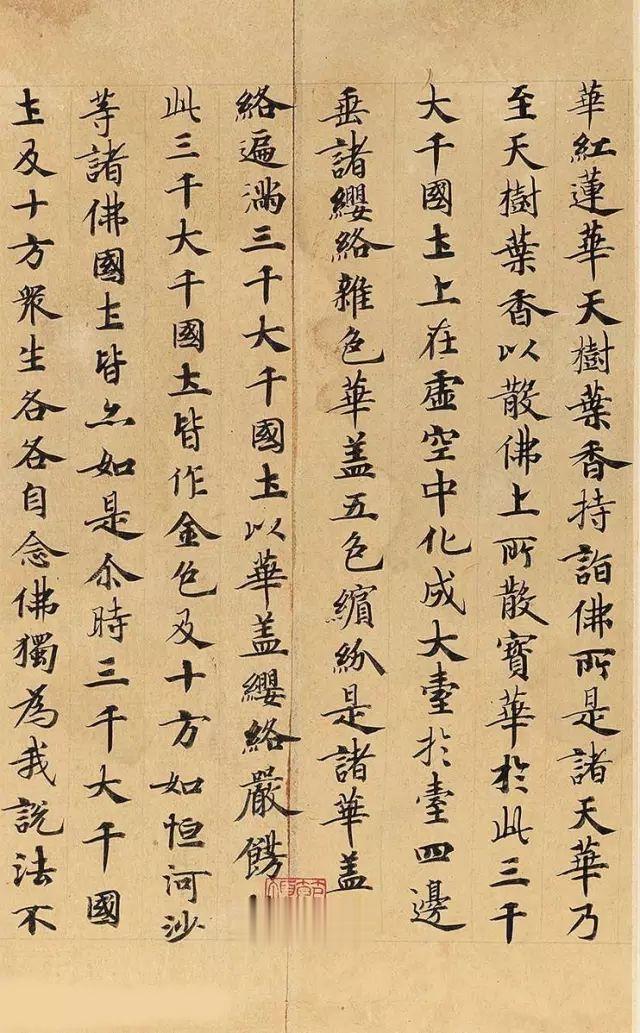 華紅蓮華天樹葉香持詣佛所是諸天華乃
至天樹葉香以散佛上所散寳華於此三千
大千國圡上在虛空中化成大臺於臺四邊
垂諸纓絡雜色華盖五色繽紛是諸華盖
絡遍滿三千大千國圡以華盖纓絡嚴餝
此三千大千國圡皆作金色及十方如恒河沙
等諸佛國圡皆亦如是尒時三千大千國
圡及十方衆生各各自念佛獨為我說法不